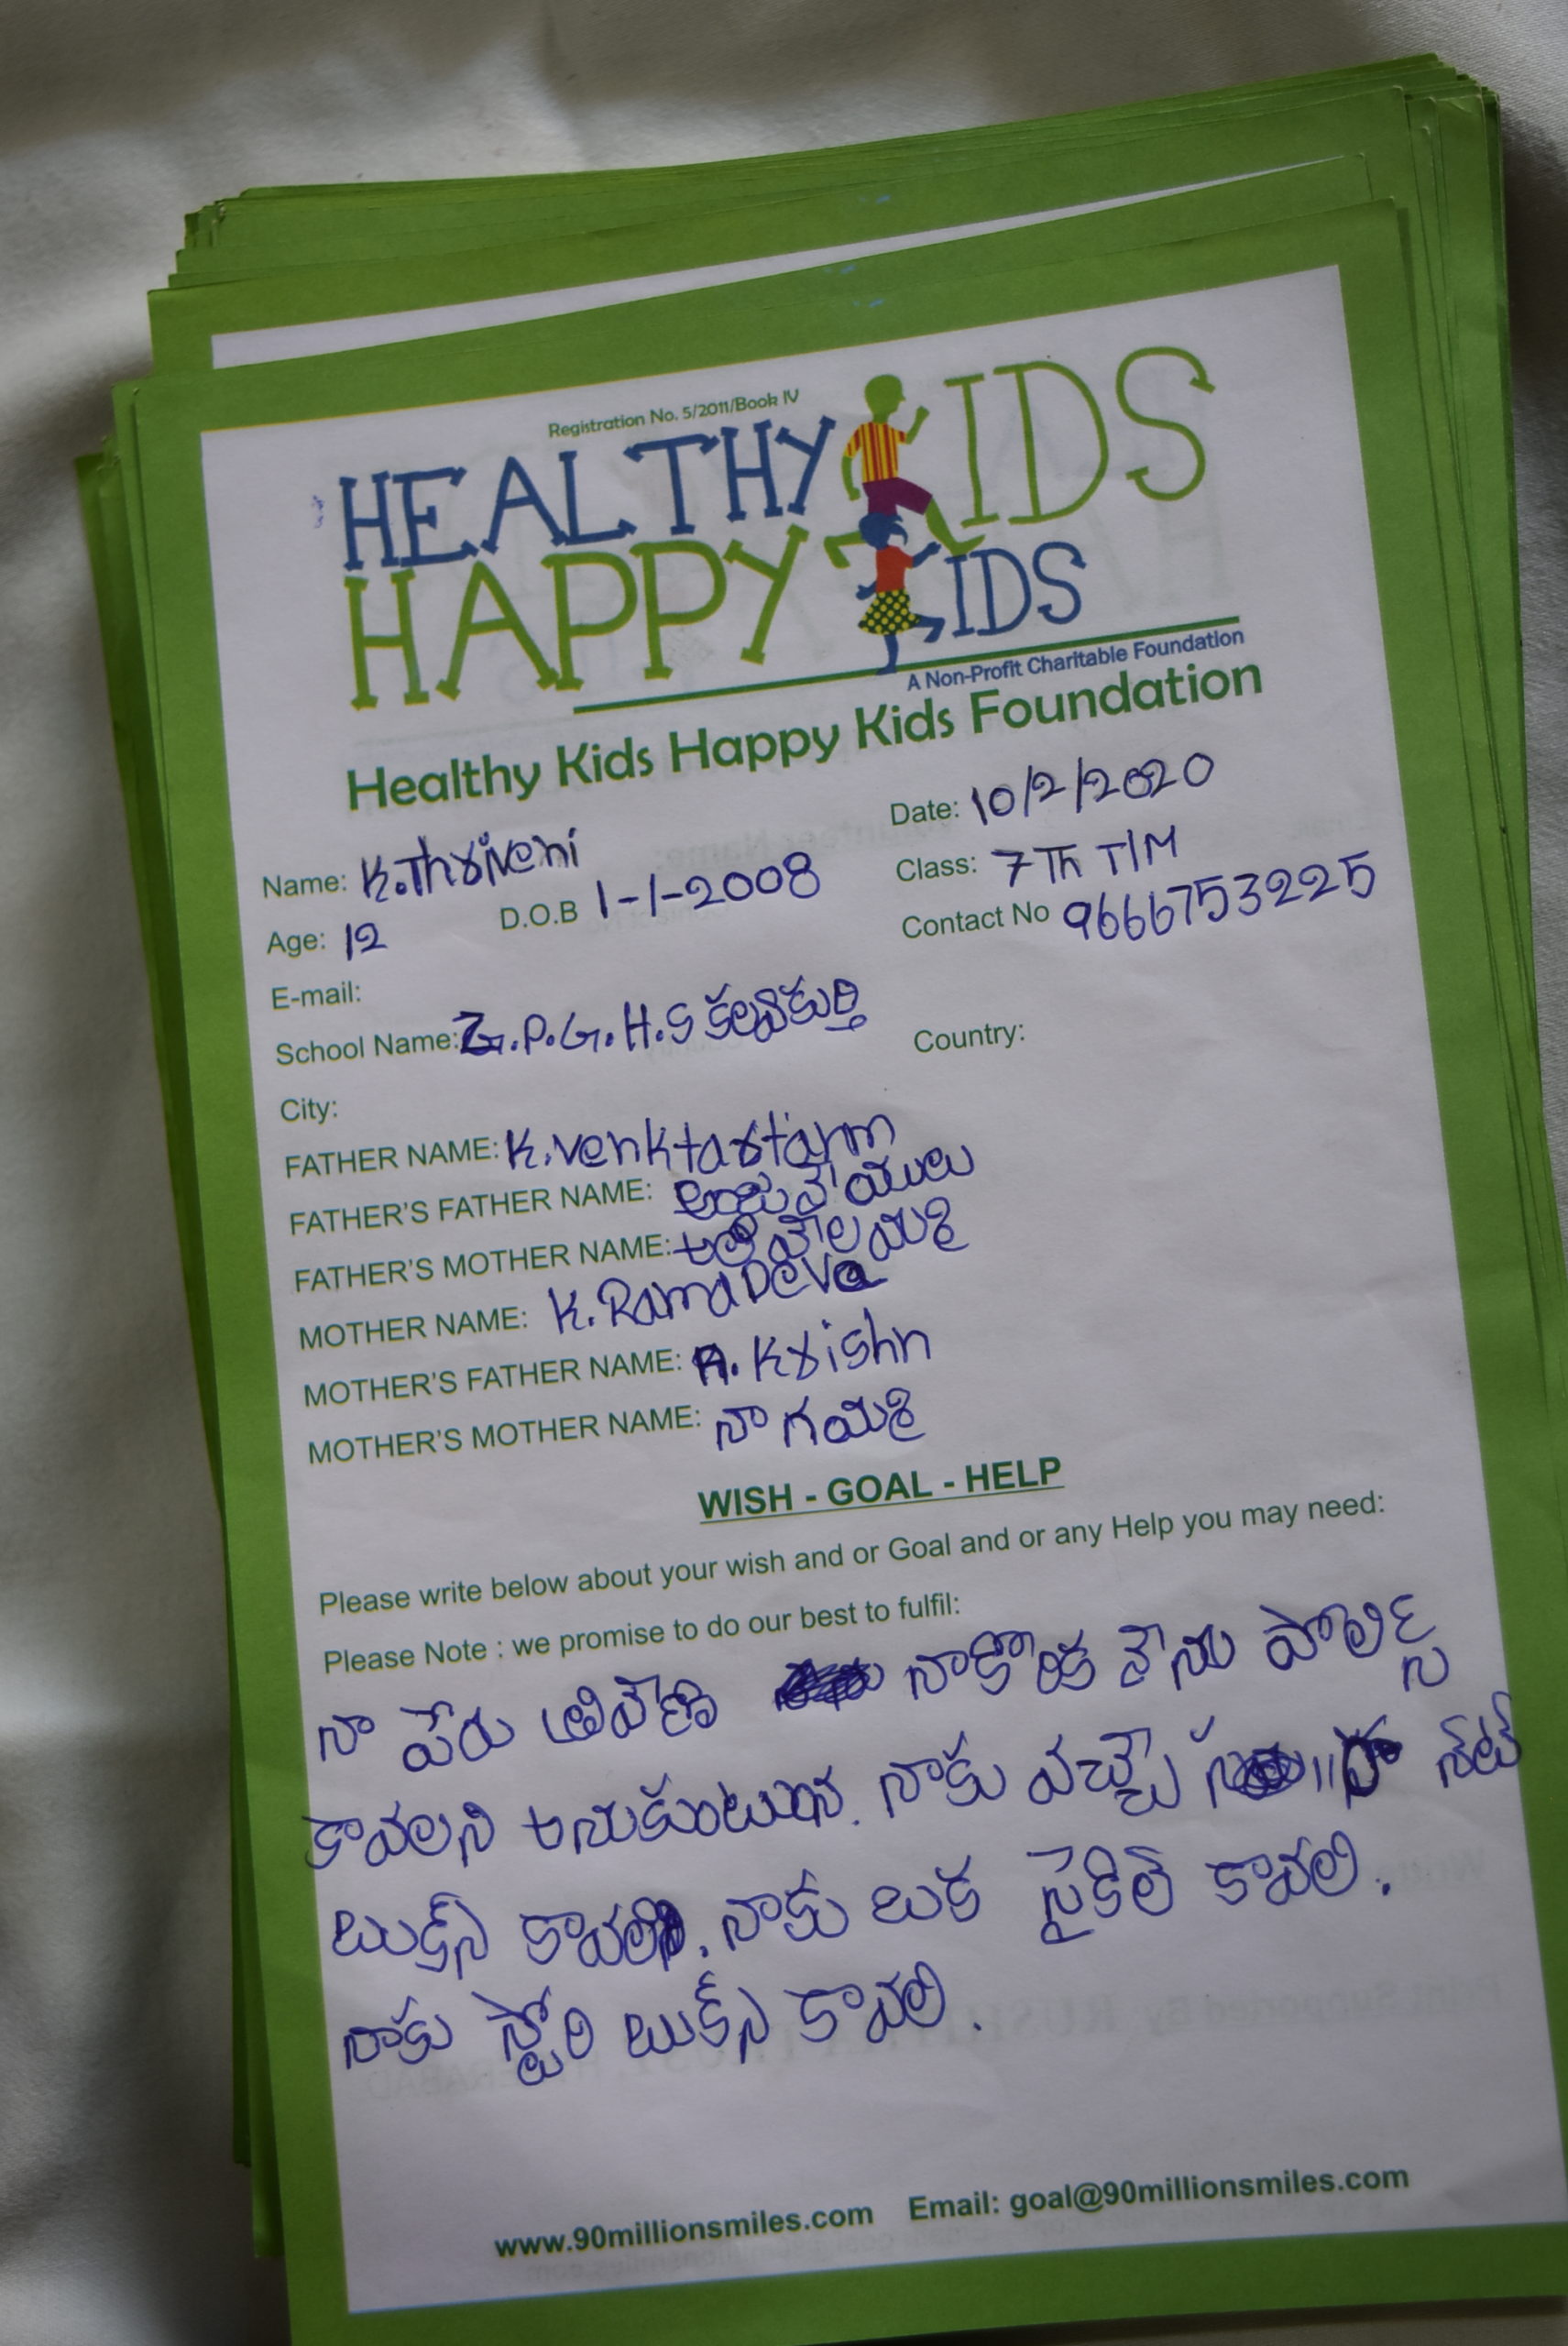 Registration No. 5/2011/Book IV
HEALTHY KIDS
HAPPY KIDS
A Non-Profit Charitable Foundation
Healthy Kids Happy Kids Foundation
Date: 10/2/2020
Name: K.Thriveni
Class: 7 Th T/M
Age: 12 D.O.B 1-1-2008
Contact No 9666753225
E-mail:
School Name: Z.P.G.H.S కల్వకుర్తి
Country:
City:
FATHER NAME: K.venktartarm
FATHER'S FATHER NAME:
FATHER'S MOTHER NAME:
MOTHER NAME: K. Rama Deva
MOTHER'S FATHER NAME: A. Krishn
MOTHER'S MOTHER NAME:
WISH - GOAL - HELP
Please write below about your wish and or Goal and or any Help you may need:
Please Note : we promise to do our best to fulfil:
నా పేరు త్రివేణి నాకోరిక నేను పోలిస్
కావలని అనుకుంటున. నాకు వచ్చే నోట్
బుక్స్ కావలి. నాకు ఒక సైకిల్ కావలి.
నాకు స్టోరి బుక్స్ కావలి.
www.90millionsmiles.com Email: goal@90millionsmiles.com